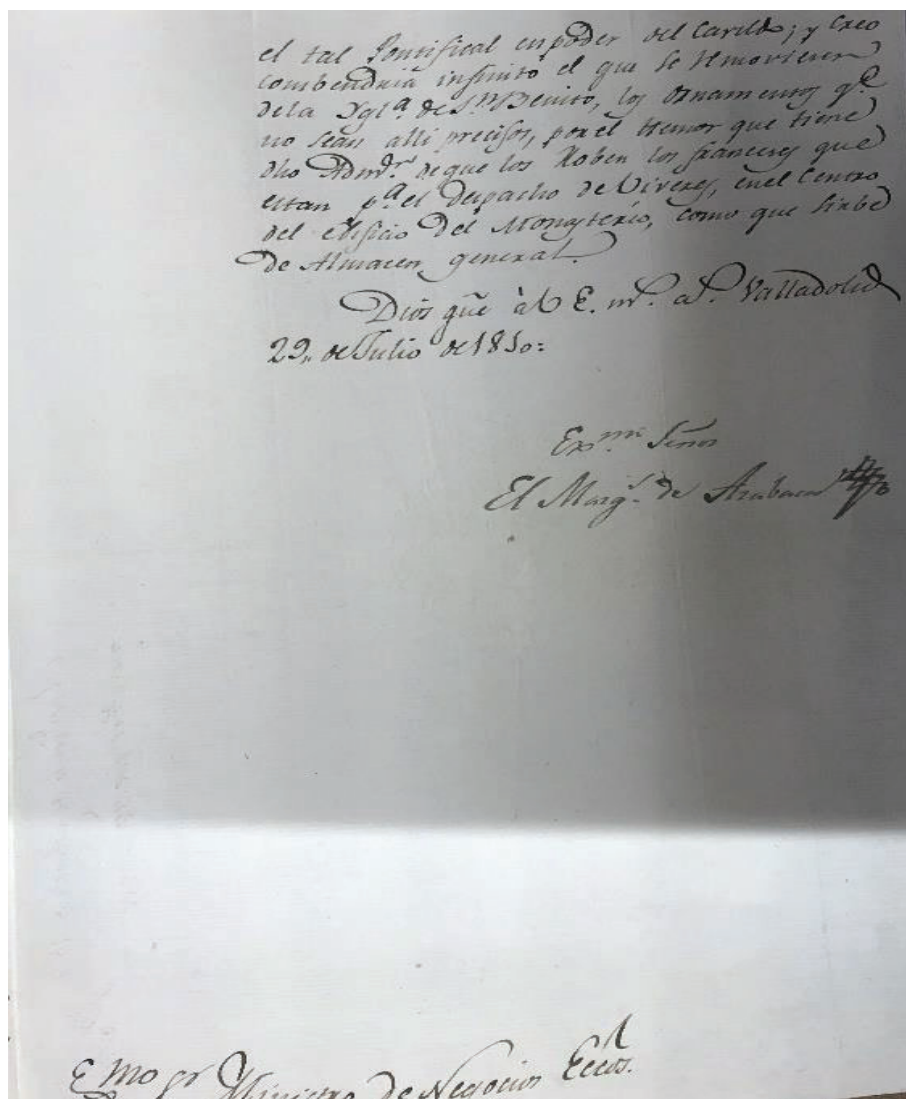 el tal Pontifical en poder del Cavildo; y creo
combendria infinito el que se removieran
de la Ygl.ª de S.n Benito, los Ornamentos q.e
no sean alli precisos, por el temor que tiene
dho Adm.or de que los Roben los franceses que
estan p.ª el Despacho de Viveres, en el Centro
del edificio del Monasterio, como que sirbe
de Almacen general.
Dios gũe à V. E. m.s a.s Valladolid
29,, de Julio de 1810=
Ex.mo Señor
El Marq.s de
Emo Sr Ministro de Negocios Eccos.